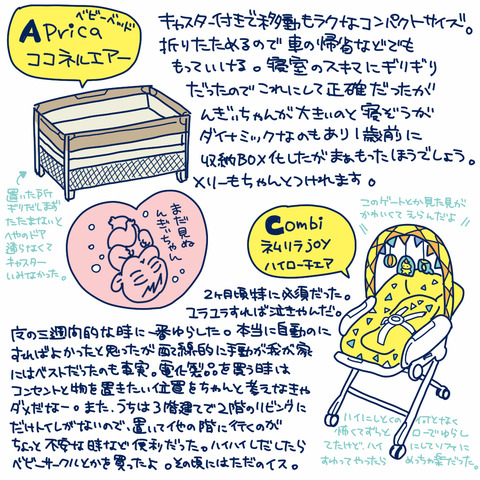 ベビーベッド
Aprica
ココネルエアー
キャスター付きで移動もラクなコンパクトサイズ。
折りたためるので車の帰省などでも
もっていける。寝室のスキマにギリギリ
だったのでこれにして正確だったが
んぎぃちゃんが大きいのと寝ぞうが
ダイナミックなのもあり1歳前に
収納BOX化したがまぁもったほうでしょう。
メリーもちゃんとつけれます。
置いた所
ギリだしまず
たたまないと
へやのドア
通らなくて
キャスター
いみなかった。
まだ見ぬ
んぎぃちゃん
Combi
ネムリラjoy
ハイローチェア
このゲートとか見た目が
かわいくてえらんだよ
2ヶ月頃特に必須だった。
ユラユラすれば泣きやんだ。
夜の三週間的な時に一番ゆらした。本当に自動のに
すればよかったと思ったが配線的に手動が我が家
にはベストだったのも事実。電化製品を買う時は
コンセントと物を置きたい位置をちゃんと考えなきゃ
ダメだなー。また、うちは3階建てで2階のリビングに
だけトイレがないので、置いて他の階に行くのが
ちょっと不安な時など便利だった。ハイハイしだしたら
ベビーサークルとかを買ったよ。その頃にはただのイス。
ハイにしとくの
怖くてずっと
てたけど、ハイ
すわってやったら
イってなく
ローでゆらし
にしてソファに
めっちゃ楽だった。